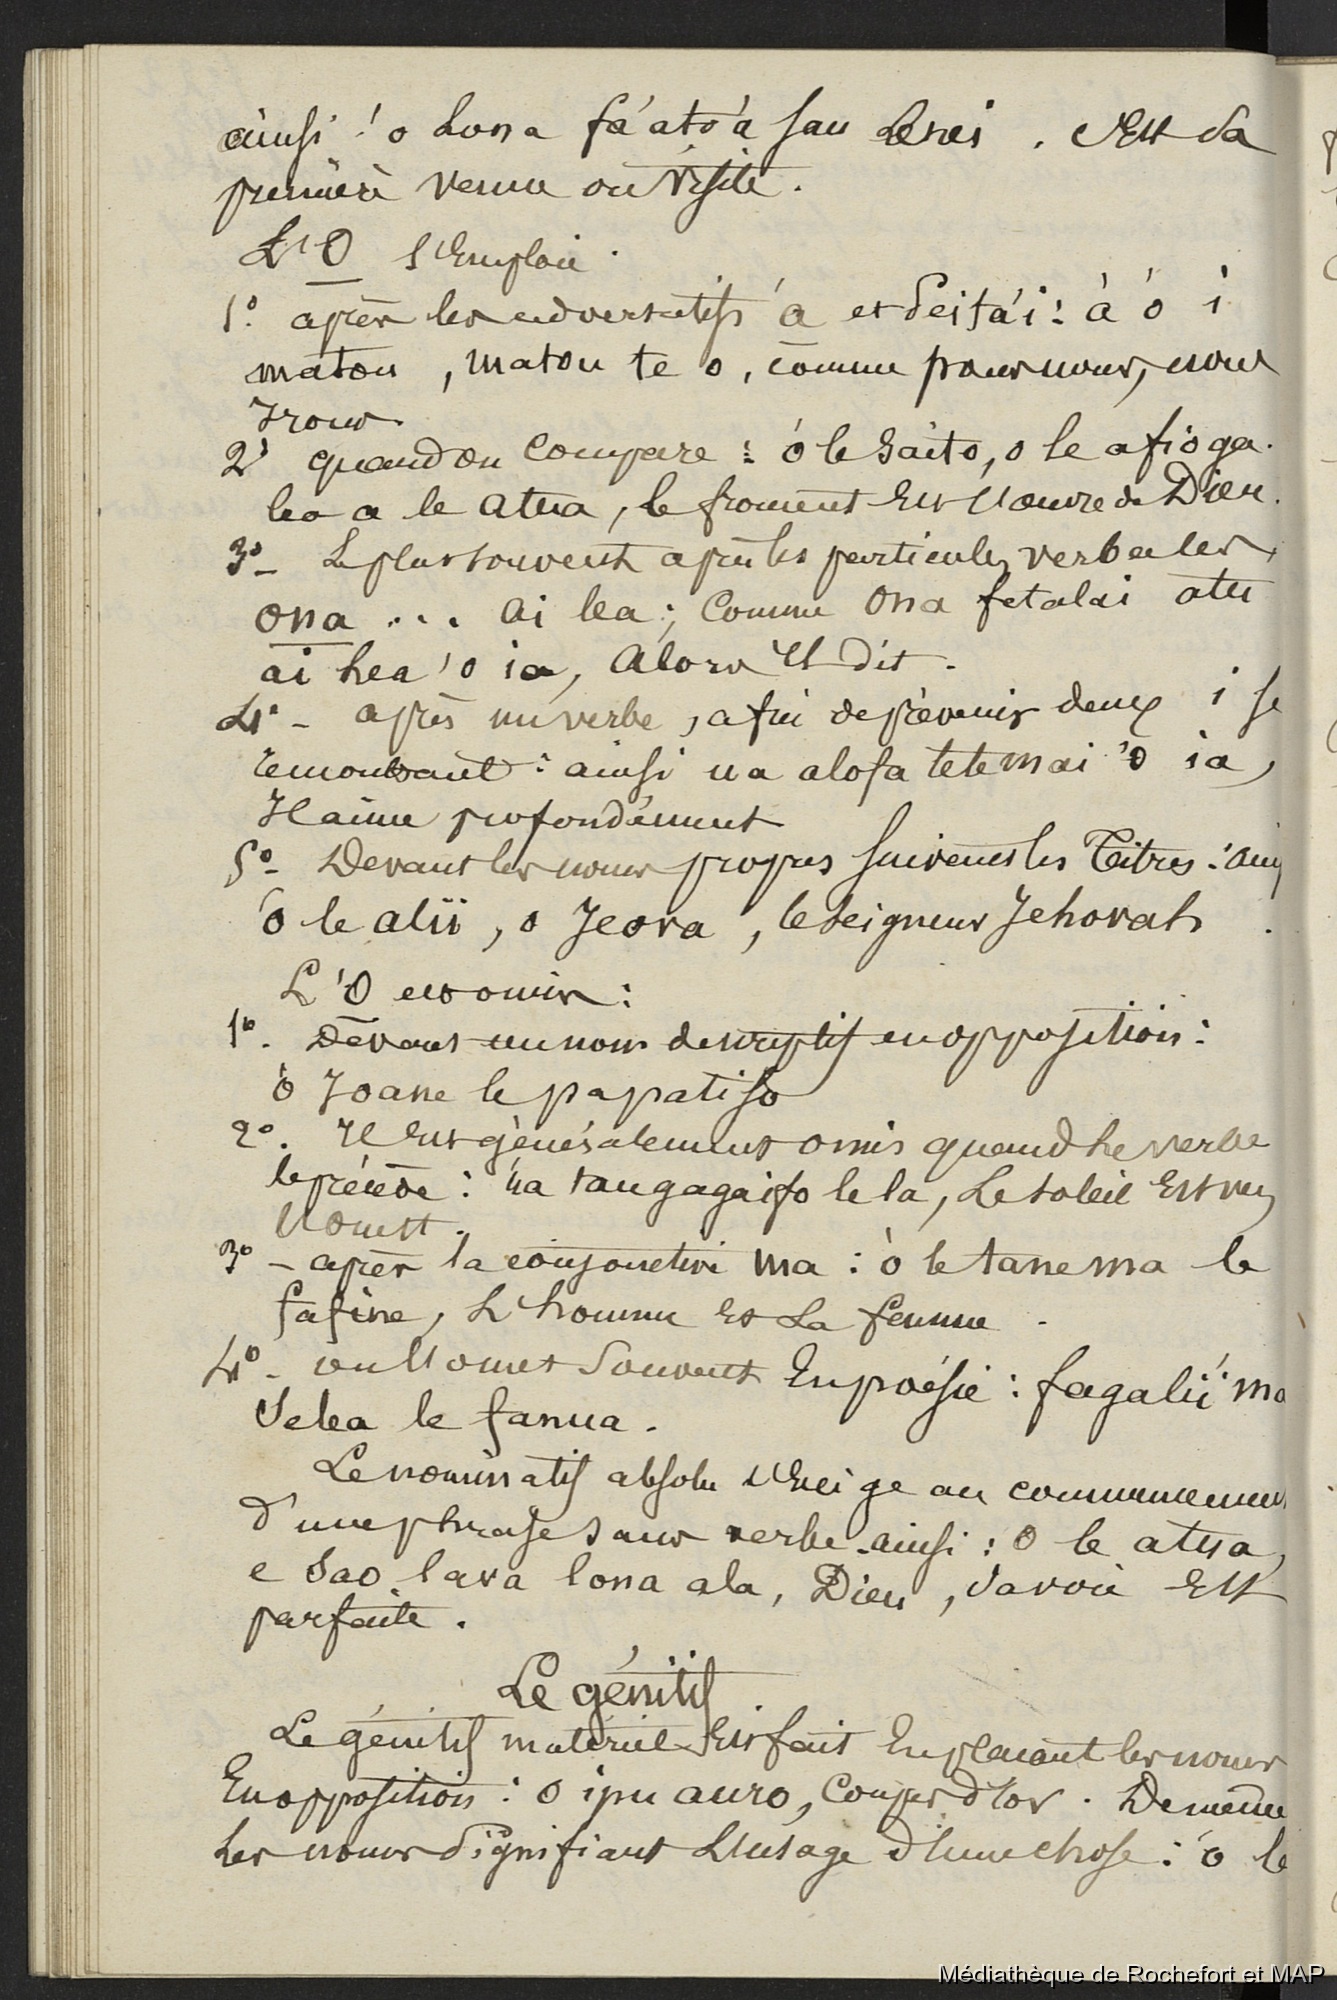 ainsi : 'o lona fa'ato'a sau lenei . c'est sa
première venue ou visite.
L'O s'emploie
1°. après les adversatifs 'a et peita'i : 'a 'o i
matou , matou te o, comme pour nous, nous
irons.
2° quand on compare : 'o le saito, o le afioga
lea a le atua, le froment est l'œuvre de Dieu.
3°- Le plus souvent après les particules verbales,
ona ... ai lea ; comme Ona fetalai atu
ai lea 'o ia, Alors il dit .
4°- après un verbe , afin de prévenir deux i se
rencontrant : ainsi ua alofa tele mai 'o ia,
Il aime profondément
5°- Devant les noms propres suivent les Titres : ainsi
'o le alii , o Ieova , le Seigneur Jehovah .
L'O est omis :
1°. Devant un nom descriptif en opposition :
'o Ioane le papatiso
2°. Il est généralement omis quand le verbe
le précède : ua tau gagaifo le la, Le soleil est vers
l'ouest.
3° - après la conjonction ma : 'o le tane ma le
fafine, L'homme et la femme .
4°- on l'omet souvent En poésie : fagalii ma
Selea le fanua .
Le nominatif absolu s'exige au commencement
d'une phrase sans verbe ainsi : O le atua,
e sao lava lona ala, Dieu , sa voie Est
parfaite .
Le génitif .
Le génitif matériel est fait En plaçant les noms
En opposition : o ipu auro, Coupes d'or . De même
Les noms signifiant L'usage d'une chose : 'o le
Médiathèque de Rochefort et MAP